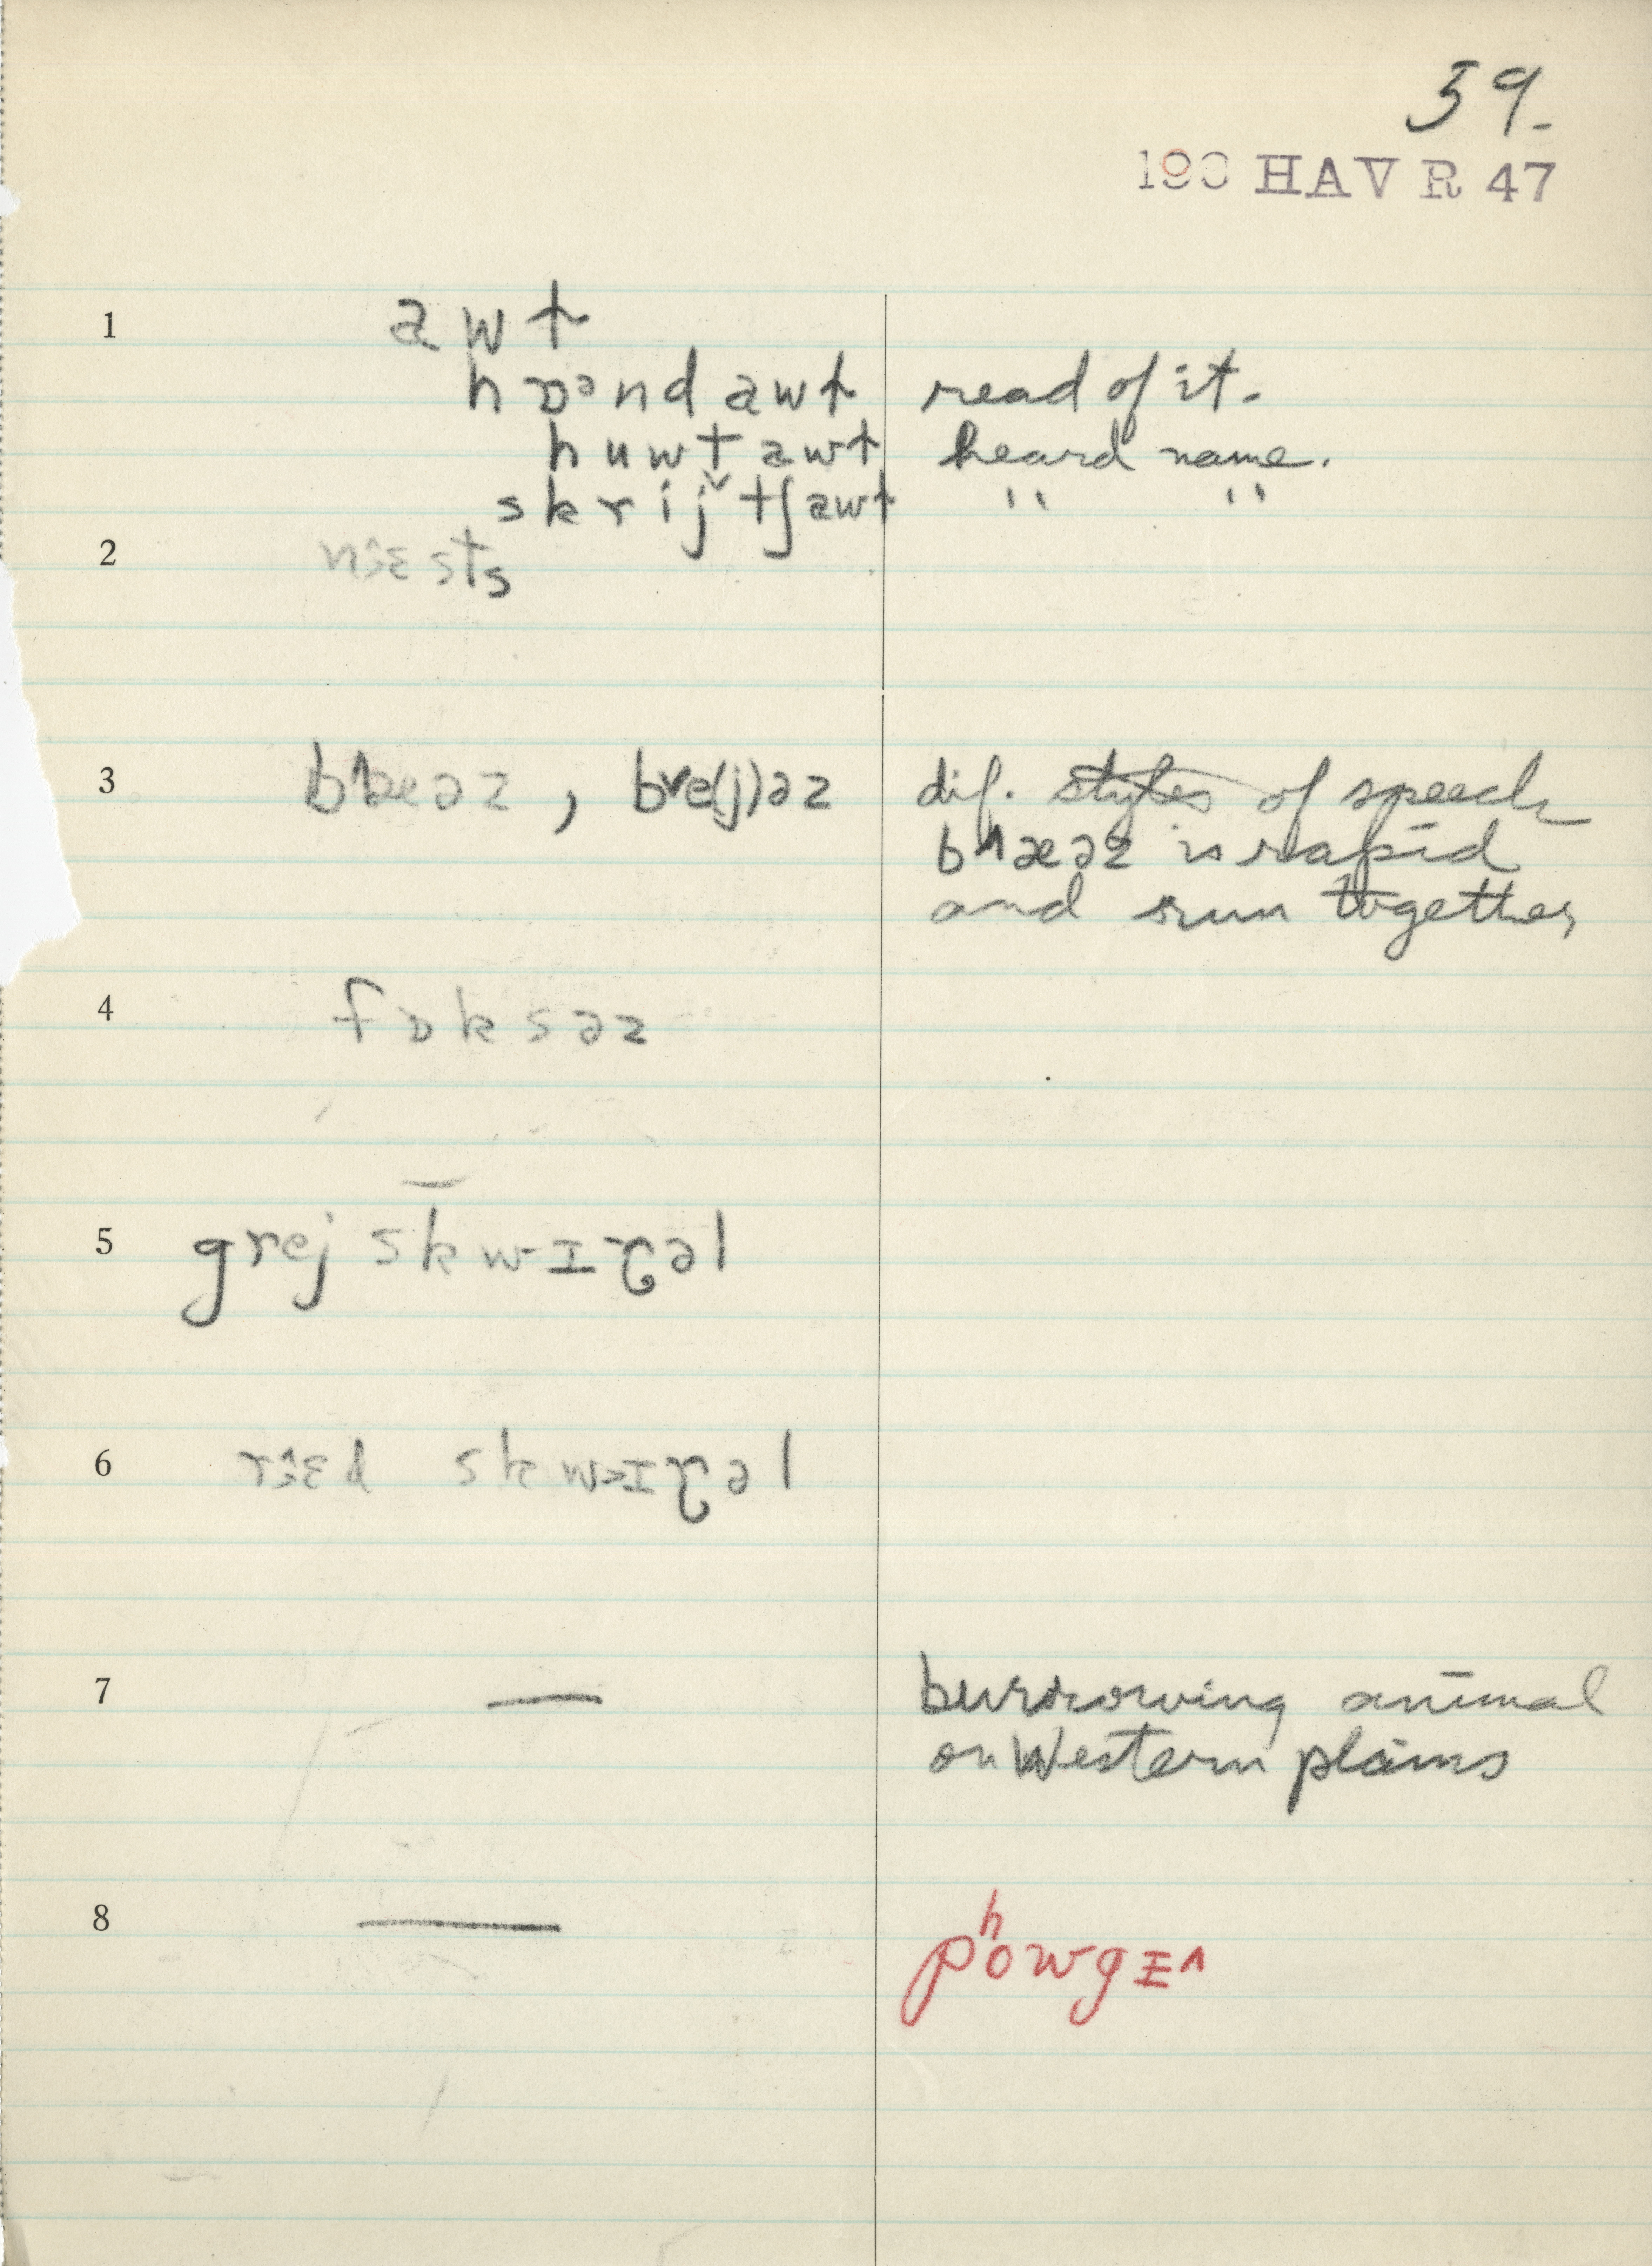 59.
190 HAV R 47
1 awt
hɒᵊnd awt read of it.
huwt awt heard name.
skrij˅tʃawt " "
2 nɜɛsts
3 , bve(j)əz dif. styles of speech
b˄æəz is rapid
and run together
4 fɒksəz
5 grej skwɪɽəl
6 skwɪɽəl
7 — burrowing animal
on Western plains
8 — pʰowgɪ˄